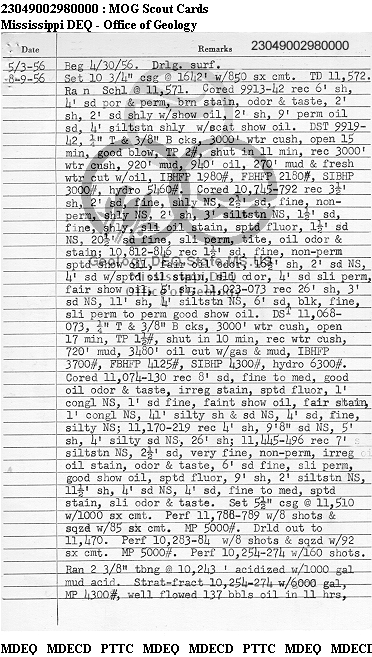 23049002980000 : MOG Scout Cards
Mississippi DEQ - Office of Geology
Date Remarks 23049002980000
5/3-56 Beg 4/30/56. Drlg. surf.
-8-9-56 Set 10 3/4" csg @ 1642' w/850 sx cmt. TD 11,572.
Ra n Schl @ 11,571. Cored 9913-42 rec 6' sh,
4' sd por & perm, brn stain, odor & taste, 2'
sh, 2' sd shly w/show oil, 2' sh, 9' perm oil
sd, 4' siltstn shly w/scat show oil. DST 9919-
42, ¼" T & 3/8" B cks, 3000' wtr cush, open 15
min, good blow, TP 2#, shut in 11 min, rec 3000'
wtr cush, 920' mud, 940' oil, 270' mud & fresh
wtr cut w/oil, IBHFP 1980#, FBHFP 2180#, SIBHP
3000#, hydro 5460#. Cored 10,745-792 rec 3½'
sh, 2' sd, fine, shly NS, 2½' sd, fine, non-
perm, shly NS, 2' sh, 3' siltstn NS, 1½' sd,
fine, shly, sli oil stain, sptd fluor, 1½' sd
NS, 20½' sd fine, sli perm, tite, oil odor &
stain; 10,812-846 rec 1½' sd, fine, non-perm
sptd show oil, fair oil odor, sh, 2' sd NS,
4' sd w/sptd oil stain, sli odor, 4' sd sli perm,
fair show oil, 5' sh; 11,023-073 rec 26' sh, 3'
sd NS, 11' sh, 4' siltstn NS, 6' sd, blk, fine,
sli perm to perm good show oil. DST 11,068-
073, ¼" T & 3/8" B cks, 3000' wtr cush, open
17 min, TP 1½#, shut in 10 min, rec wtr cush,
720' mud, 3480' oil cut w/gas & mud, IBHFP
3700# FBHFP 4125#, SIBHP 4300#, hydro 6300#.
Cored 11,074-130 rec 8' sd, fine to med, good
oil odor & taste, irreg stain, sptd fluor, 1'
congl NS, 1' sd fine, faint show oil, fair stain,
1' congl NS, 41' silty sh & sd NS, 4' sd, fine,
silty NS; 11,170-219 rec 4' sh, 9'8" sd NS, 5'
sh, 4' silty sd NS, 26' sh; 11,445-496 rec 7'
siltstn NS, 2½' sd, very fine, non-perm, irreg
oil stain, odor & taste, 6' sd fine, sli perm,
good show oil, sptd fluor, 9' sh, 2' siltstn NS,
11½' sh, 4' sd NS, 4' sd, fine to med, sptd
stain, sli odor & taste. Set 5½" csg @ 11,510
w/1000 sx cmt. Perf 11,788-789 w/8 shots &
sqzd w/85 sx cmt. MP 5000#. Drld out to
11,470. Perf 10,283-84 w/8 shots & sqzd w/92
sx cmt. MP 5000#. Perf 10,254-274 w/160 shots.
Ran 2 3/8" tbng @ 10,243 ' acidized w/1000 gal
mud acid. Strat-fract 10,254-274 w/6000 gal,
MP 4300#, well flowed 137 bbls oil in 11 hrs,
MDEQ MDECD PTTC MDEQ MDECD PTTC MDEQ MDECI